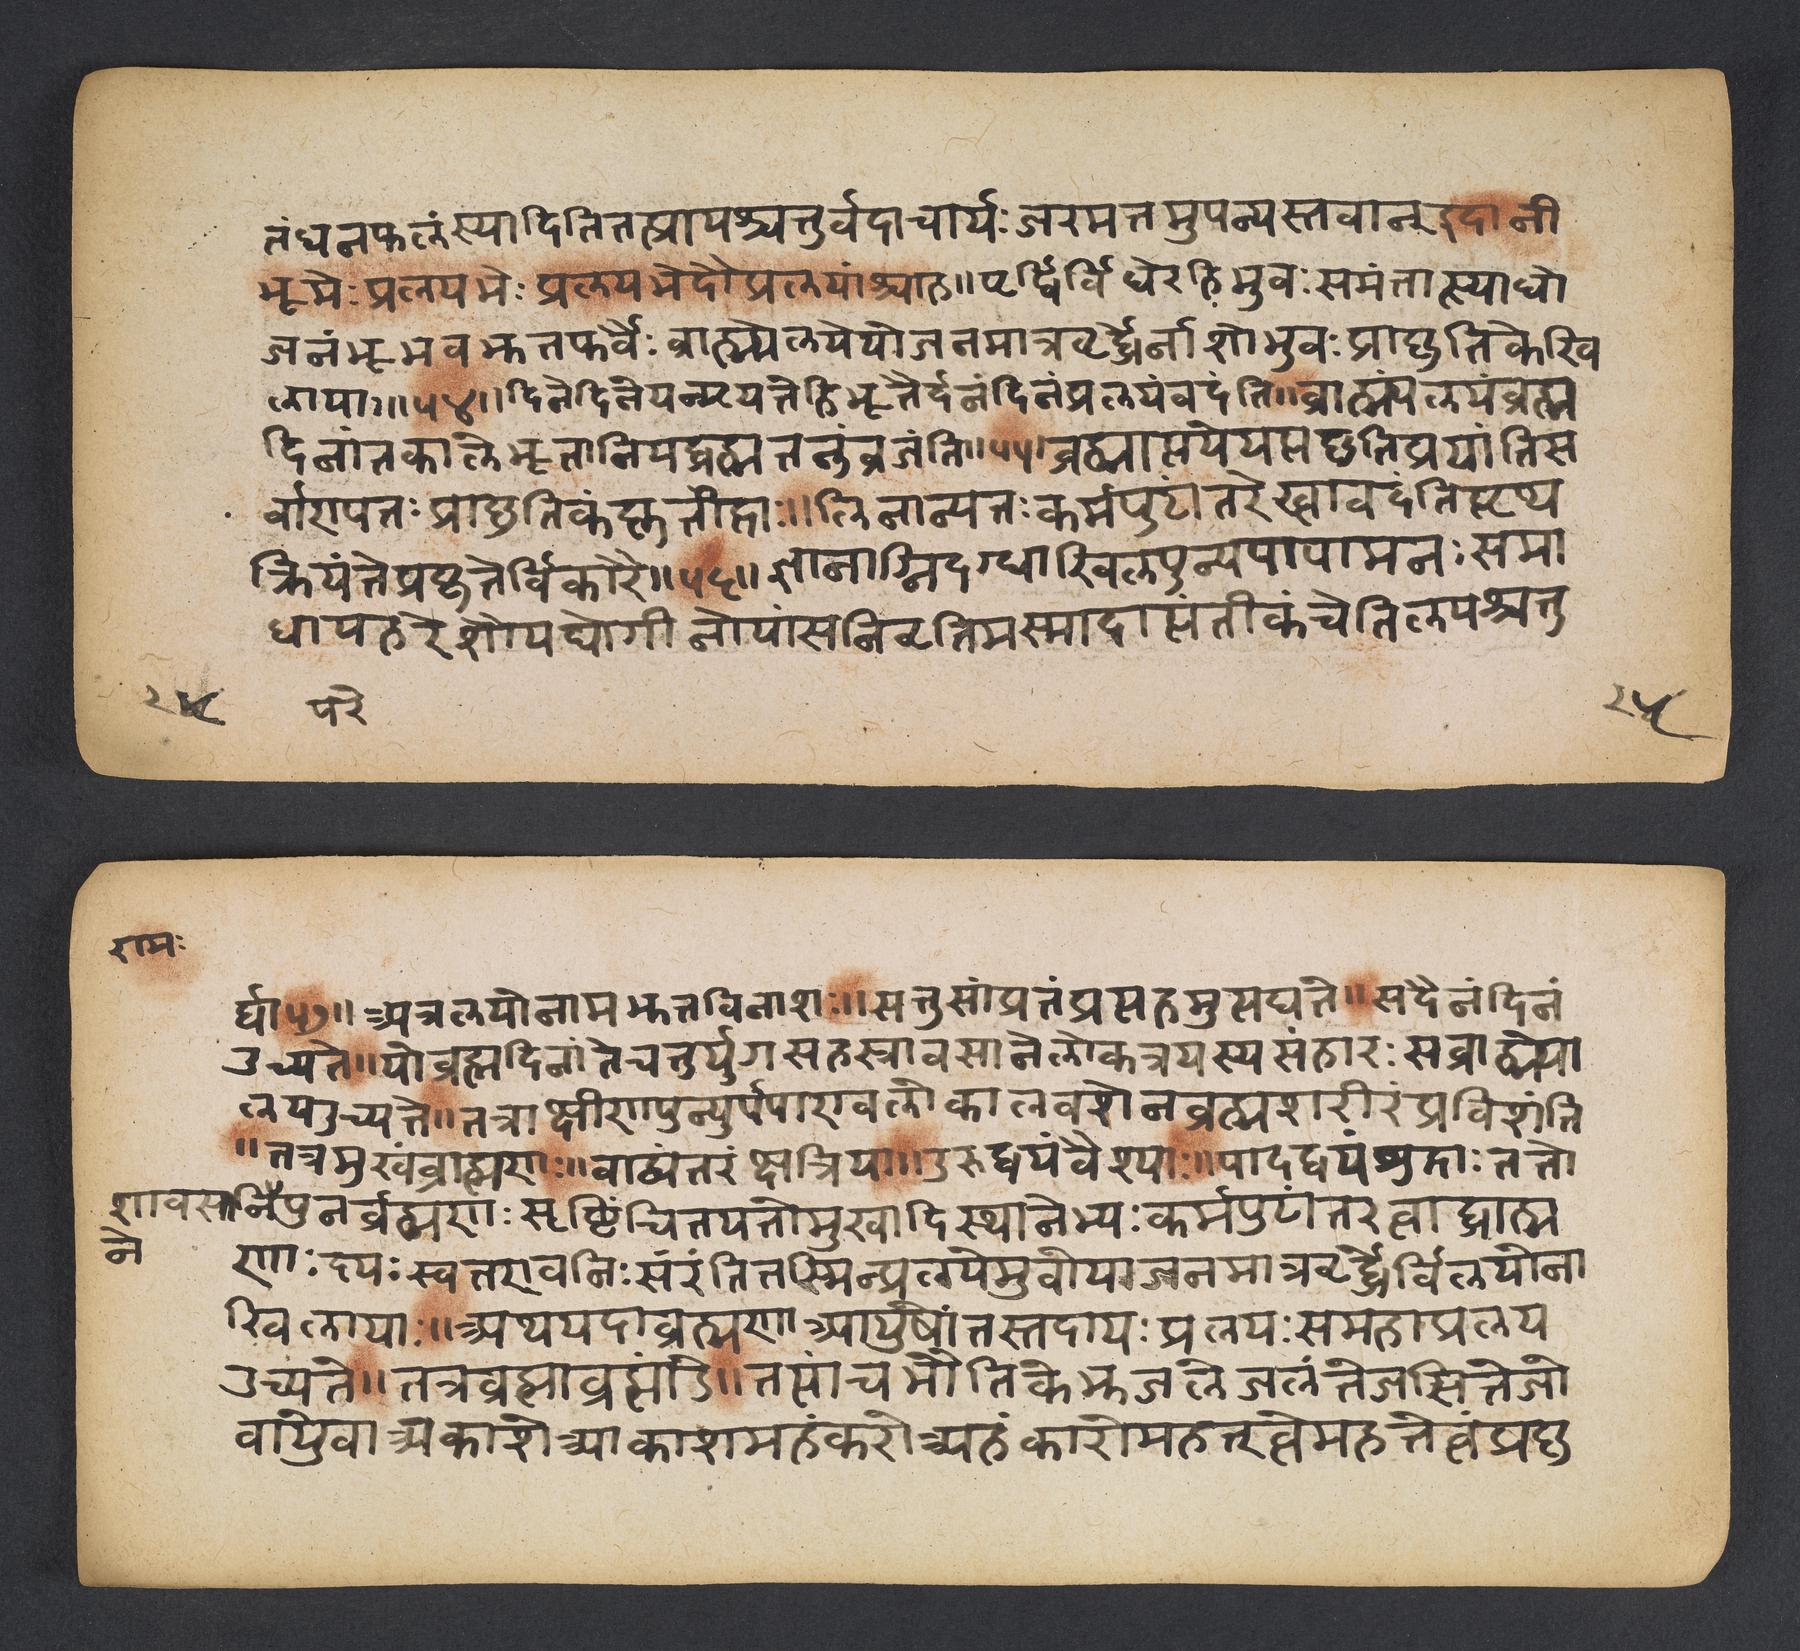 तंघनफलंस्यादितितत्प्रापश्चतुर्वेदाचार्यः जरमतमुपन्यस्तवान् इदानी
भूमेः प्रलयमेः प्रलयभेदौप्रलयांश्चाह ॥ वृद्धिर्विधेरह्निभुवः समंतात्स्याद्यो
जनंभूभवभूतपूर्वैः ब्राह्मेलयेयोजनमात्रवृद्धेर्नाशोभुवः प्राकृतिकेखि
लायाः ॥ ५४ ॥ दिनेदिनेयन्म्रियतेहिभूतैर्दैनंदिनंप्रलयंवदंति ॥ ब्राह्मंलयंब्रह्म
दिनांतकालेभूतानियद्ब्रह्मतनुंव्रजंति ॥ ५५ ॥ ब्रह्मात्ययेयत्प्रकृतिप्रयांतिभू
र्वारापतः प्राकृतिकंकृतीद्राः ॥ लिनान्यतः कर्मपुटांतरेत्वावदंतिसृष्ट्य
क्रियंतेप्रकृतेर्विकारैः ॥ ५६ ॥ ज्ञानाग्निदग्धाखिलपुन्यपापामनः समा
धायहरेशोयद्योगीनोयांसनिवृतिमस्मादात्यंतीकंचेतिलयश्चतु
२५ परे २५
रामः
र्धा ५७ ॥ अत्रलयोनामभूतविनाशः ॥ सतुसांप्रतंप्रत्यहमुत्पद्यते ॥ सदैनंदिनं
उच्यते ॥ योब्रह्मदिनांतेचतुर्युगसहस्त्रावसानेलोकत्रयस्यसंहारः सब्राह्मेया
लयउच्यते ॥ तत्राक्षीणपुन्युपापाएवलोकालवशेनब्रह्मशरीरंप्रविशंति
॥ तत्रमुखंब्राह्मणाः ॥ बाह्वंतरंक्षत्रिया ॥ उरूद्वयंवैश्याः ॥ पादद्वयंशुद्राः ततो
शावसानेपुनर्ब्रह्मणः सृष्टिंचितयतोमुखादिस्थानेभ्यः कर्मपुटांतरत्वाद्ब्राह्म
ने
णाः दयः स्वतएवनिः सरंतितस्मिन्प्रलयेभुवोयोजनमात्रवृद्धेर्विलयोना
खिलायाः ॥ अथयदाब्रह्मणाआयुषोंतस्तदायः प्रलयः समहाप्रलय
उच्यते ॥ तत्रब्रह्माब्रह्मांडे ॥ तत्पांचभौतिकेभूजलेजलंतेजसितेजो
वायुवाआकाशेआकाशमहंकरोअहंकारोमहत्त्वेमहत्तेत्वंप्रकृ